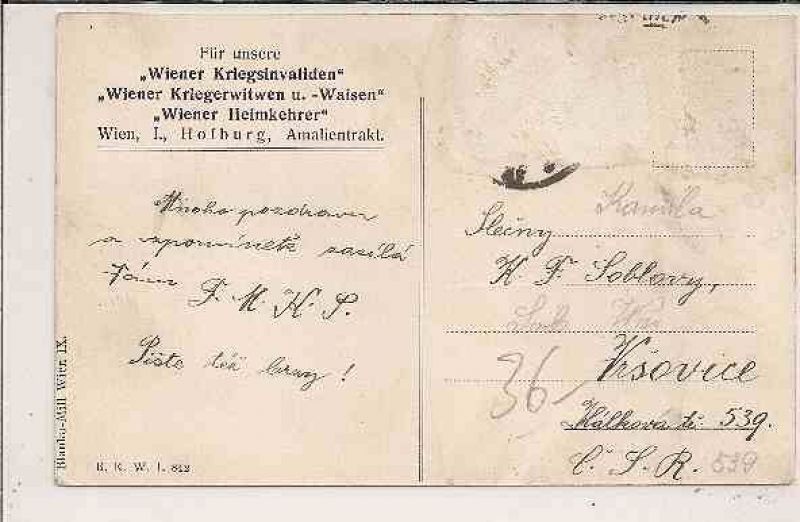 Für unsere
„Wiener Kriegsinvaliden“
„Wiener Kriegerwitwen u. -Waisen“
„Wiener Heimkehrer“
Wien, I., Hofburg, Amalientrakt.
Mnoho pozdravu
a vzpomínek zasílá
F. M. K. S.
Pište též brzy!
B. K. W. I. 842
Blanka-Mill Wien IX.
Kamila
Slečny
K. F. Soblovy,
36
Vršovice
Hálkova tř. 539.
Č. S. R. 539